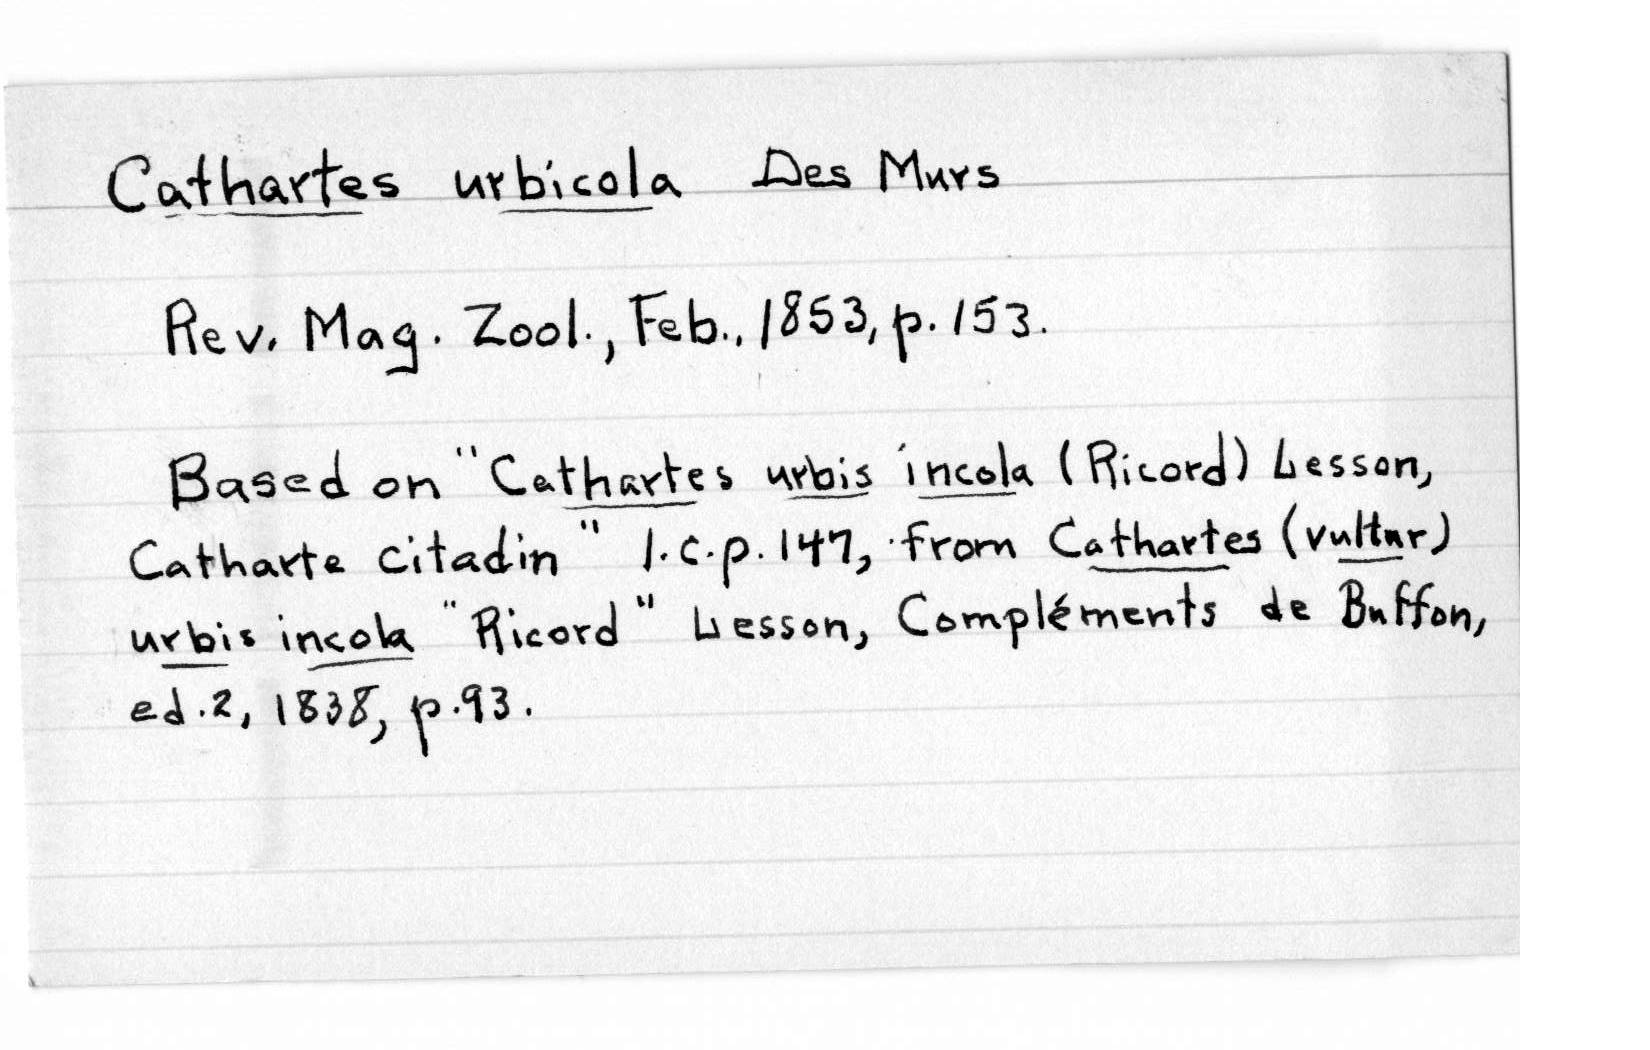 Cathartes urbicola Des Murs
Rev. Mag. Zool., Feb., 1853, p. 153.
Based on "Cathartes urbis incola (Ricord) Lesson,
Catharte citadin" l.c. p. 147, from Cathartes (vultur)
urbis incola "Ricord" Lesson, Compléments de Buffon,
ed. 2, 1838, p. 93.